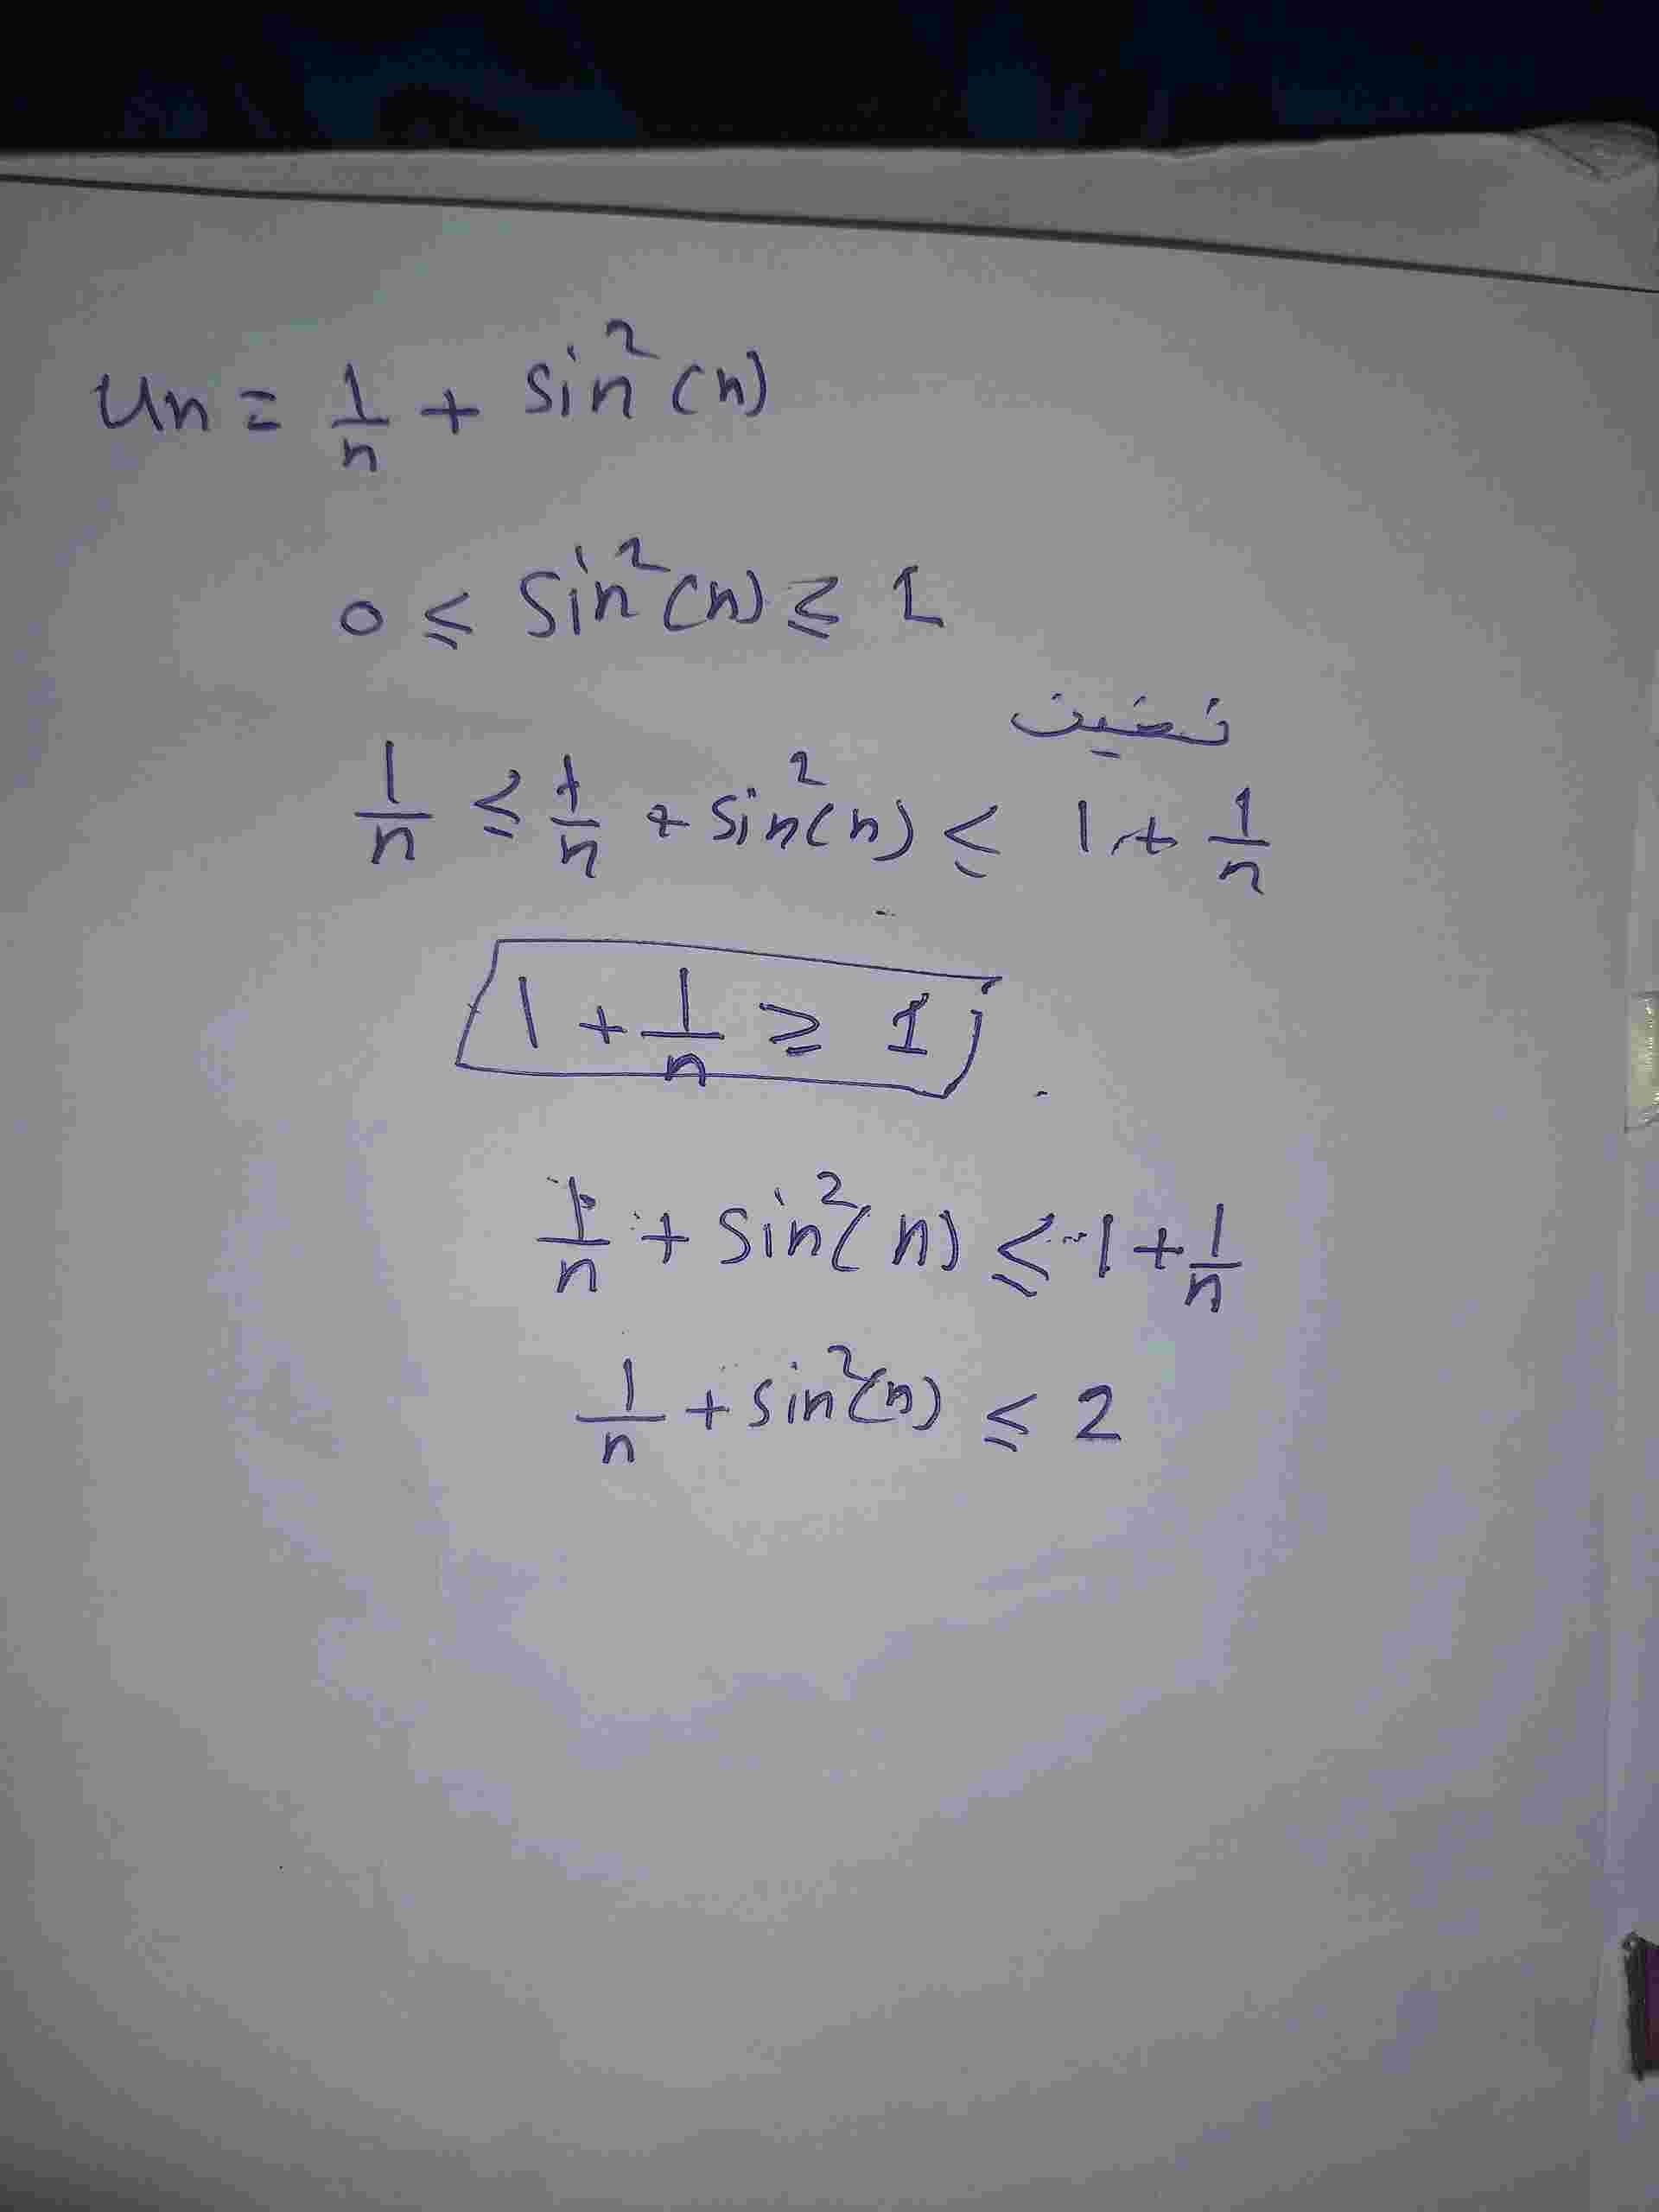 Un = 1/n + sin²(n)
0 ≤ sin²(n) ≥ 1
نضيف
1/n ≤ 1/n + sin²(n) ≤ 1 + 1/n
1 + 1/n ≥ 1
1/n + sin²(n) ≤ 1 + 1/n
1/n + sin²(n) ≤ 2